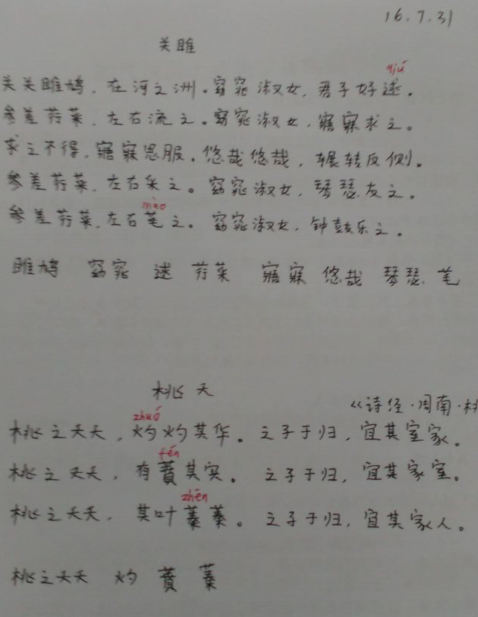 16.7.31
关雎
关关雎鸠，在河之洲。窈窕淑女，君子好逑。
qiú
参差荇菜，左右流之。窈窕淑女，寤寐求之。
求之不得，寤寐思服。悠哉悠哉，辗转反侧。
参差荇菜，左右采之。窈窕淑女，琴瑟友之。
mào
参差荇菜，左右芼之。窈窕淑女，钟鼓乐之。
雎鸠 窈窕 逑 荇菜 寤寐 悠哉 琴瑟 芼
桃夭
《诗经·周南·
zhuó
桃之夭夭，灼灼其华。之子于归，宜其室家。
fén
桃之夭夭，有蕡其实。之子于归，宜其家室。
zhēn
桃之夭夭，其叶蓁蓁。之子于归，宜其家人。
桃之夭夭 灼 蕡 蓁